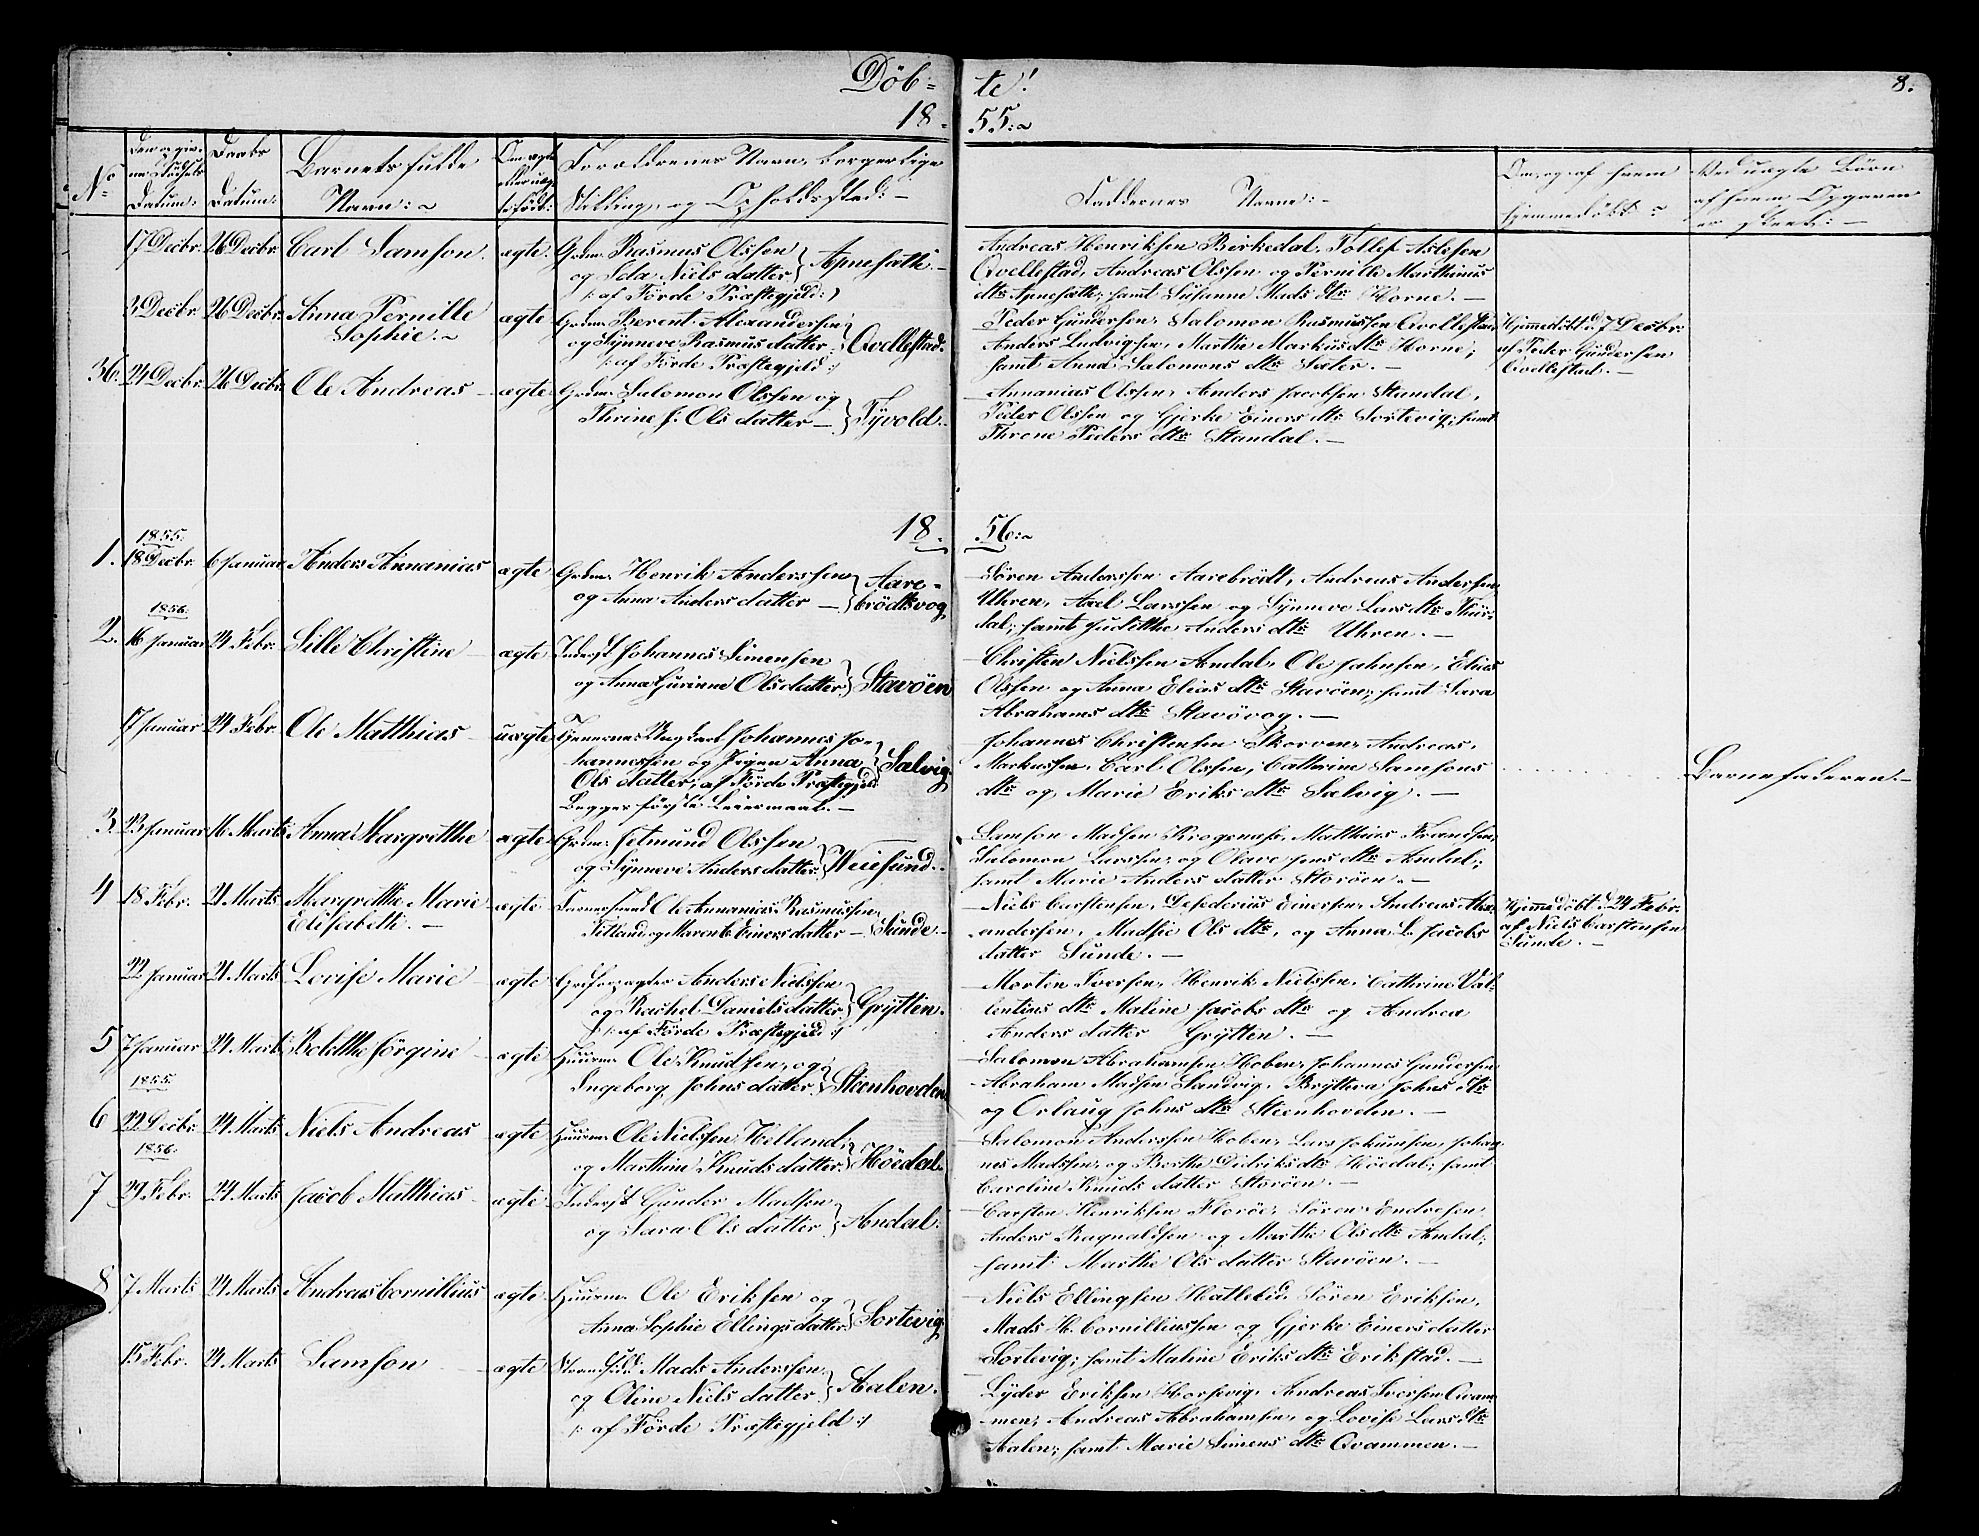 Döb= te!
8.
18. 55:~
No
Den opgiv-
ne Födsels
Datum.
Daabs
Datum.
Barnets fulde
Navn:~
Om ægte
eller uæg-
te født:
Forældrenes Navn, borgerlige
Stilling, og Opholdssted:-
Faddernes Navne:-
Om, og af hvem
hjemmedöbt:~
Ved uægte Börn
af hvem Opgaven
er skeet:-
17 Decbr. 26 Decbr. Carl Samson. ægte Grdm. Rasmus Olssen
og Ida Niels datter } Apnesæth.-
/: af Förde Præstegjeld:/
Andreas Henriksen Birkedal, Tollef Aslessen
Qvellestad, Andreas Olssen og Pernille Marthinus
dtr Apnesæth; samt Susanne Mads dtr Horne.-
3 Decbr. 26 Decbr. Anna Pernille
Sophie.~
ægte Grdm. Berent Alexandersen
og Synneve Rasmus datter } Qvellestad.
/: af Förde Præstegjeld:/
Peder Gundersen, Salomon Rasmussen Qvellestad
Anders Ludvigsen, Marthe Markus dtr Horne;
samt Anna Salomons dtr Sæter.-
Hjemmedöbt d. 7 Decbr.
af Peder Gundersen
Qvellestad.-
36. 24 Decbr. 26 Decbr. Ole Andreas - ægte Grdm. Salomon Olssen og
Thrine J. Ols datter - } Tyvold.-
Annanias Olssen, Anders Jacobsen Standal,
Peder Olssen og Gjerke Einers dtr Sortevig; samt
Throne Peders dtr Standal.-
18. 56:~
1855.
1. 18 Decbr. 6 Januar Anders Annanias ægte Grdm. Henrik Anderssen
og Anna Anders datter - } Aare-
brödtsvog.
Sören Anderssen Aarebrödt, Andreas Anderssen
Uhren, Axel Larssen og Synneve Lars dtr Thör-
dal; samt Judithe Anders dtr Uhren.-
1856.
2. 16 Januar 24 Febr. Sille Christine - ægte Inderst Johannes Simensen
og Anna Gurinne Ols datter } Stavöen
Christen Nielssen Andal, Ole Johnsen, Elias
Olssen og Anna Elias dtr Stavöen; samt Sara
Abrahams dtr Stavövog.-
17 Januar 24 Febr. Ole Matthias - uægte Johannes Jo-
hannessen og Pigen Anna
Ols datter, af Förde Præstegjeld
Begges förste Leiermaal.-
} Sælvig.
Johannes Christensen Skorven, Andreas
Markussen, Carl Olssen, Cathrine Samsons
dtr og Marie Eriks dtr Sælvig.-
Barnefaderen.-
3. 23 Januar 16 Marts Anna Margrethe ægte Grdm. Jetmund Olssen
og Synneve Anders datter } Veiesund.-
Samson Madsen Krogenæss, Matthias Frandsen,
Salomon Larssen, og Olave Jens dtr Andal;
samt Marie Anders datter Storöen.-
4 18 Febr. 21 Marts Margrethe Marie
Elisabeth.-
- ægte Ole Annanias Rasmussen
Titland og Marenth. Einers datter - } Sunde.-
Niels Carstensen, Desederius Einersen, Andreas Alex-
andersen, Madsie Ols dtr, og Anna L. Jacobs
datter Sunde.-
Hjemmedöbt d. 24 Febr.
af Niels Carstensen
Sunde.-
22 Januar 21 Marts Lovise Marie - ægte Anders Nielssen
og Rachel Daniels datter } Grytten.
/: af Förde Præstegjeld:/
Morten Iversen, Henrik Nielssen, Cathrine Val-
lentins dtr Maline Jacobs dtr og Andrea
Anders datter Grytten.-
5 7 Januar 24 Marts Bolethe Jörgine - ægte Huusm. Ole Knudsen, og
Ingeborg Johns datter } Steenhovden.
Salomon Abrahamsen Hoben, Johannes Gundersen
Abraham Madsen Sandvig, Bryttera Johns dtr
og Orlaug Johns dtr Steenhovden.-
1855.
6 22 Decbr. 24 Marts Niels Andreas - ægte Huusm. Ole Nielssen Helland,
og Marthine Knuds datter } Höedal.
Salomon Anderssen Hoben, Lars Jokumsen, Johan-
nes Madssen, og Berthe Didriks dtr Höedal; samt
Caroline Knuds datter Storöen.-
1856.
7 29 Febr. 24 Marts Jacob Matthias - ægte Inderst Gunder Madsen
og Sara Ols datter } Andal.
Carsten Henriksen Floröe, Sören Endresen,
Anders Ragnaldsen og Marthe Ols dtr Andal;
samt Marthe Ols datter Stavöen.-
8 7 Marts 24 Marts Andreas Cornillius ægte Huusm. Ole Eriksen og
Anna Sophie Ellings datter } Sortevig.
Niels Ellingsen Hatlelid, Sören Eriksen,
Mads H. Cornilliussen og Gjerke Einers datter
Sortevig; samt Maline Eriks dtr Erikstad.-
15 Febr. 24 Marts Samson - ægte Mads Anderssen
og Oline Niels datter } Aalen.
/: af Förde Præstegjeld:/
Lyder Eriksen Horsevig, Andreas Iversen Qvam-
men, Andreas Abrahamsen, og Lovise Lars dtr
Aalen; samt Marie Simens dtr Qvammen.-